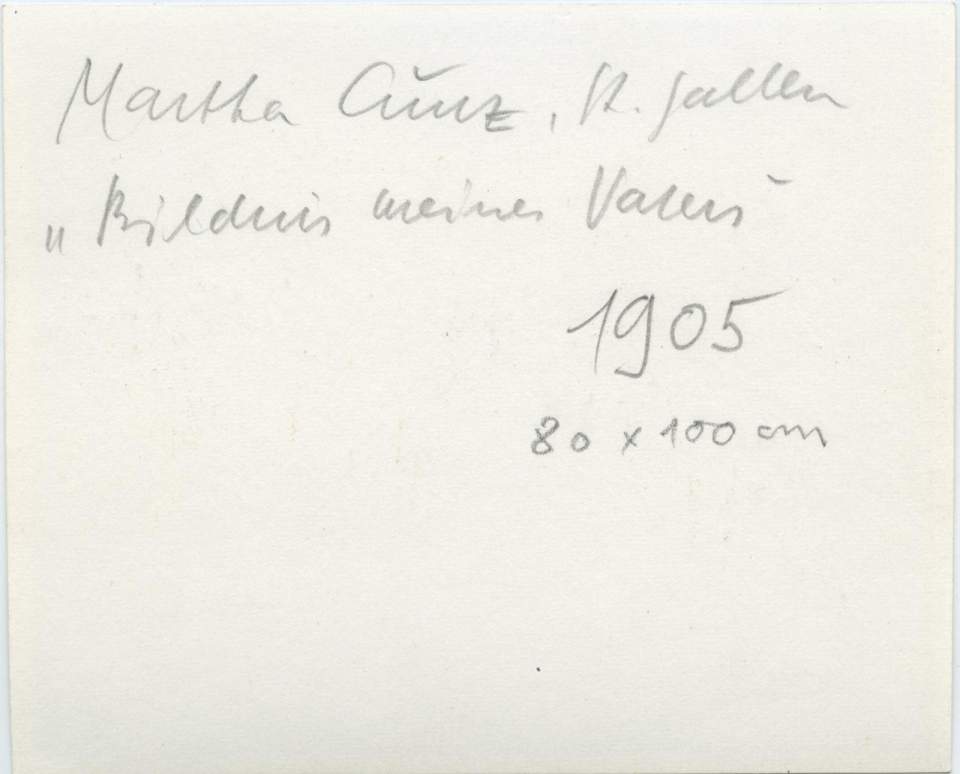 Martha Cunz, St. Gallen
„Bildnis meines Vaters“
1905
80 x 100 cm